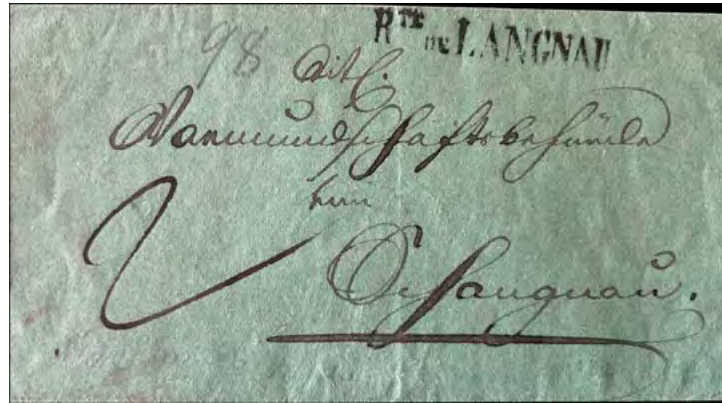 98 RTE DE LANGNAU
Titl.
Vormundschaftsbehörde
2
Schangnau.